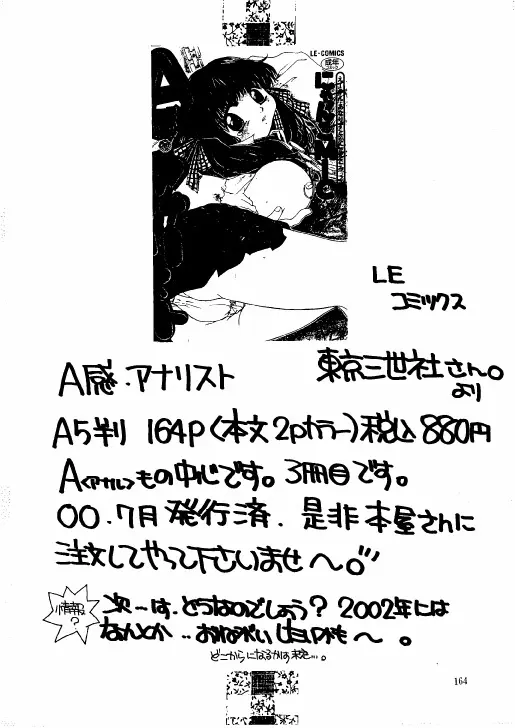 LE-COMICS
成年
LE
コミックス
A感・アナリスト
東京三世社さん。
より
A5判 164P〈本文2pカラー〉税込880円
A〈アナル〉もの中心です。3冊目です。
00.7月 発行済. 是非 本屋さんに
注文してやって下さいませ〜。
情報?
次ーは、どうなのでしょう? 2002年には
なんとか
どこからになるかは
164